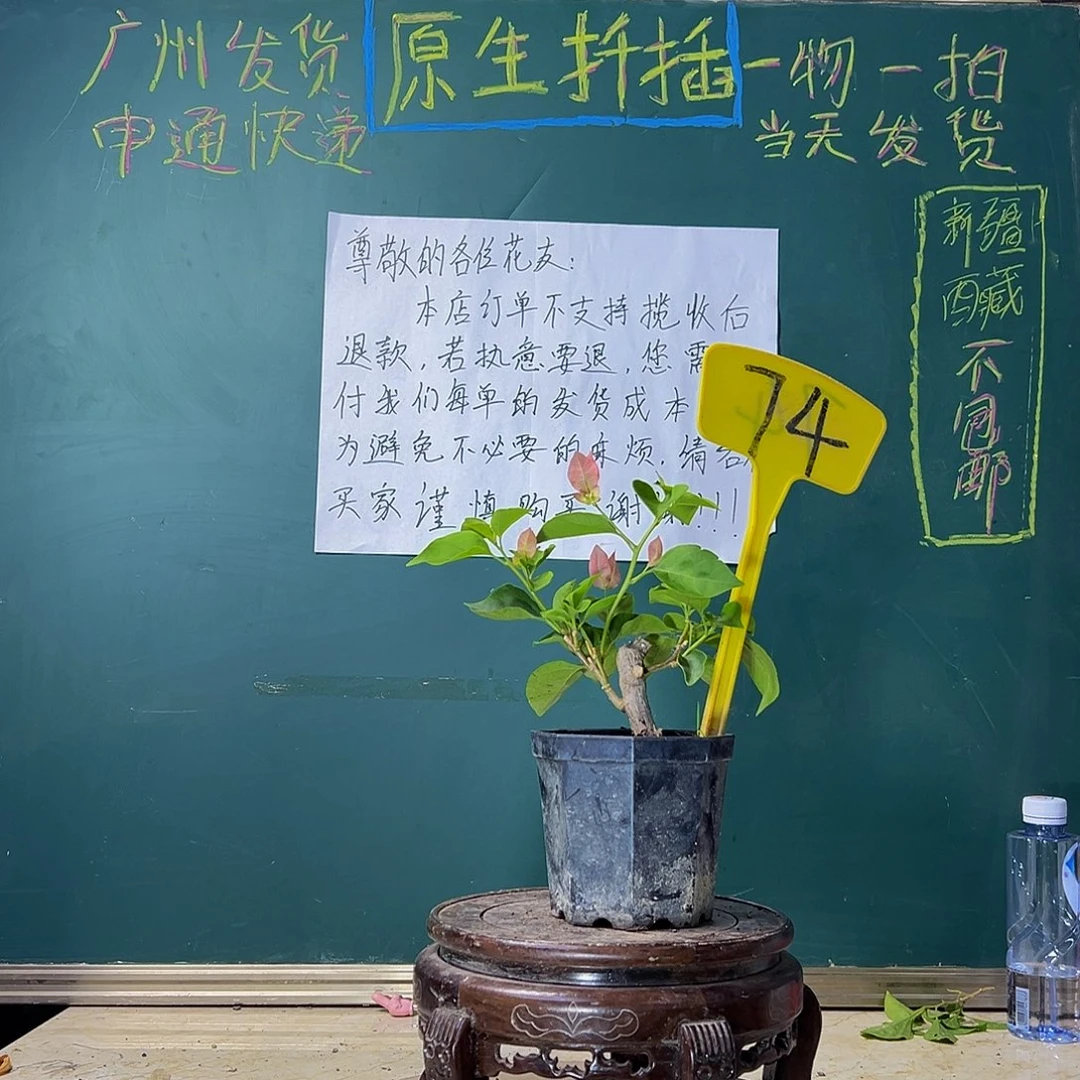 广州发货
申通快递
原生扦插
一物一拍
当天发货
新疆
西藏
不包邮
尊敬的各位花友:
本店订单不支持揽收后
退款,若执意要退,您需
付我们每单的发货成本
为避免不必要的麻烦,请各
买家谨慎购买谢谢!!!
74